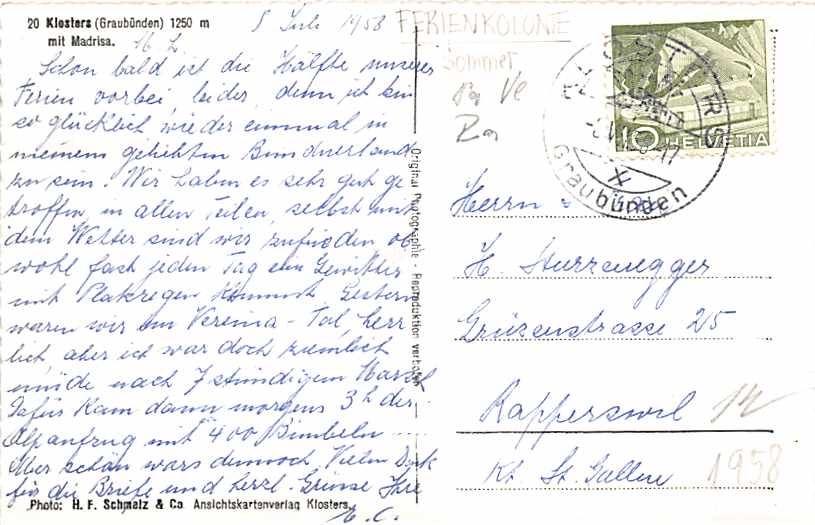 20 Klosters (Graubünden) 1250 m
mit Madrisa.
5 Juli 1958
M. L.
Schon bald ist die Hälfte unserer
Ferien vorbei, leider, denn ich bin
so glücklich wieder einmal in
meinem geliebten Bündnerland
zu sein. Wir haben es sehr gut ge
troffen, in allen Teilen, selbst mit
dem Wetter sind wir zufrieden ob
wohl fast jeden Tag ein Gewitter
mit Platzregen kommt. Gestern
waren wir im Vereina-Tal, herr
lich aber ich war doch ziemlich
müde nach 7 stündigem Marsch
Dafür kam dann morgens 3h der
Alpaufzug mit 400 Bimbeln
Aber schön wars dennoch. Vielen Dank
für die Briefe und herzl. Grüsse Ihre
E. C.
Photo: H. F. Schmalz & Co. Ansichtskartenverlag Klosters.
Original Photographie - Reproduktion verboten
FERIENKOLONIE
Sommer
Ve
HELVETIA
10
Graubünden
Herrn
H. Sturzenegger
Grüzenstrasse 25
Rapperswil
Kt. St. Gallen
1958